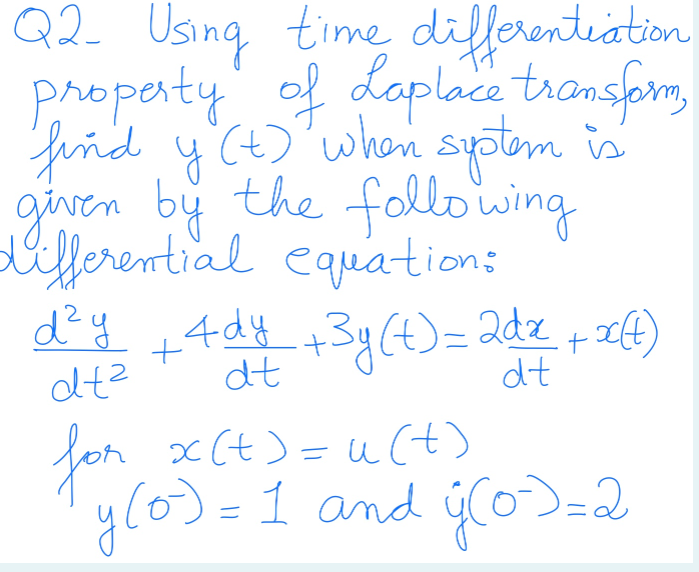 Q2- Using time differentiation
property of Laplace transform,
find y(t) when system is
given by the following
differential equation:
d²y/dt² + 4dy/dt + 3y(t) = 2dx/dt + x(t)
for x(t) = u(t)
y(0⁻) = 1 and ẏ(0⁻)=2